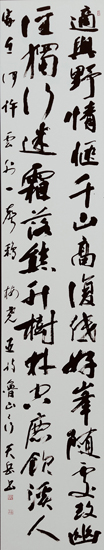 適與野情愜千山高復低好峯隨處改幽
徑獨行迷霜落熊升樹林空鹿飲溪人
家在何許雲外一聲鷄 梅堯臣詩魯山山行 天岳書